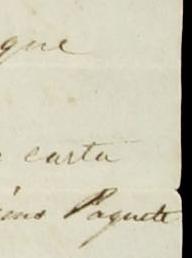 que
carta
Paquete